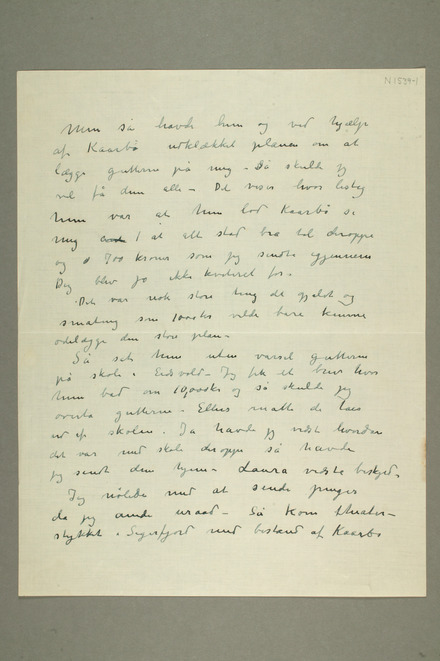 N 1534-1
Men så havde hun og ved hjælp
af Kaarbö udklækket planen om at
lægge gutterne på mig – Så skulde jeg
vel få dem alle – Det viser hvor listig
hun var at hun lod Kaarbö si
mig 1 at alt stod bra til deroppe
og 700 kroner som jeg sendte igjennem
Dig blev jo ikke kvitteret for.
Det var nok store ting de gjaldt og
småting som 1000kr vilde bare kunne
ødelægge den store plan –
Så satt hun uten varsel gutterne
på skole i Eidsvold – Jeg fik et brev hvor
hun bad om 10,000kr og så skulde jeg
overta gutterne. Ellers måtte de taes
ud af skolen. Ja havde jeg vidst hvordan
det var med skole deroppe så havde
jeg sendt dem hjem – Laura vidste beskjed.
Jeg nölede med at sende penger
da jeg anede uraad – Så kom theater-
stykket i Sigerfjord med bestand af Kaarbö